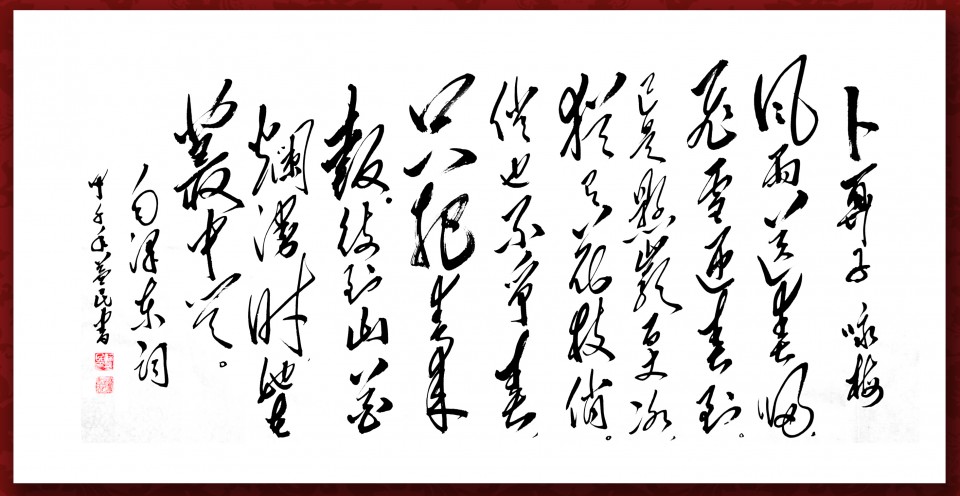 卜算子 咏梅
风雨送春归，
飛雪迎春到。
已是悬崖百丈冰，
犹有花枝俏。
俏也不争春，
只把春来
報。待到山花
爛漫时，她在
叢中笑。
毛泽东词
甲午年益民書